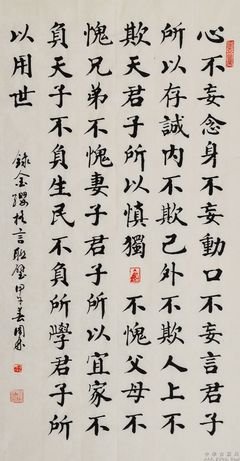 心不妄念身不妄動口不妄言君子
所以存誠內不欺己外不欺人上不
欺天君子所以慎獨 不愧父母不
愧兄弟不愧妻子君子所以宜家不
負天子不負生民不負所學君子所
以用世
錄金纓格言聯璧甲午